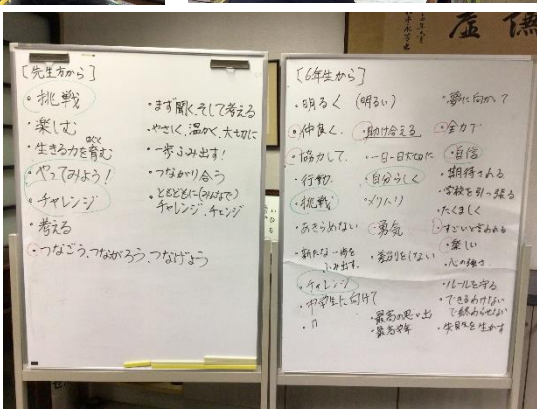 [先生方から]
・挑戦
・楽しむ
・生きる力を育む
はぐく
・やってみよう!
・チャレンジ
・考える
・つなごう、つながろう、つなげよう
・まず聞く、そして考える
・やさしく、温かく、大切に
・一歩ふみ出す!
・つながり合う
・ともどもに(みんなで)
チャレンジ、チェンジ
[6年生から]
・明るく (明るい)
・仲良く
・協力して
・行動
・挑戦
・あきらめない
・新たな一歩を
ふみ出す
・チャレンジ
・中学生に向けて
・助け合える
・一日一日大切に
・自分らしく
・メリハリ
・勇気
・差別をしない
・最高の思い出
・最高学年
・夢に向かって
・全力で
・自信
・期待される
・学校を引っ張る
・たくましく
・すごいと言われる
・楽しい
・心の強さ
・ルールを守る
・できるわけない
で終わらせない
・失敗を生かす